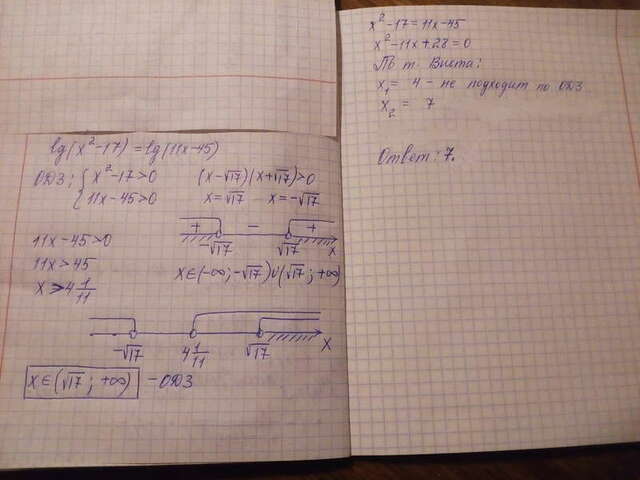 lg(x²-17)=lg(11x-45)
ОДЗ: { x²-17>0
11x-45>0
(x-√17)(x+√17)>0
x=√17 x=-√17
+ - +
-√17 √17 x
x∈(-∞; -√17)∪(√17; +∞)
11x-45>0
11x>45
x>4 1/11
-√17 4 1/11 √17 x
x∈(√17; +∞) - ОДЗ
x²-17=11x-45
x²-11x+28=0
По т. Виета:
x₁ = 4 - не подходит по ОДЗ
x₂ = 7
Ответ: 7.